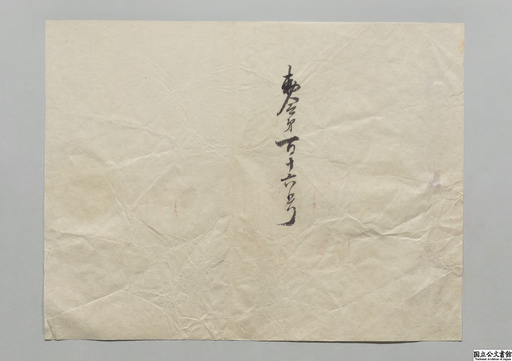 勅令第百十六号
国立公文書館
National Archives of Japan